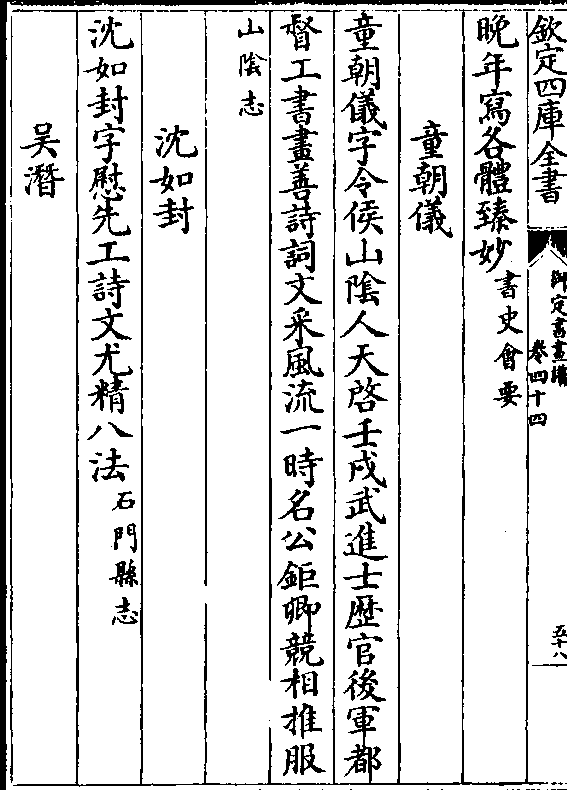 欽定四庫全書
御定書畫譜
卷四十四
五十八
晚年寫各體臻妙書史會要
童朝儀
童朝儀字令侯山陰人天啓壬戌武進士歴官後軍都
督工書畫善詩詞文采風流一時名公鉅卿競相推服
山陰志
沈如封
沈如封字慰先工詩文尤精八法石門縣志
吴潛